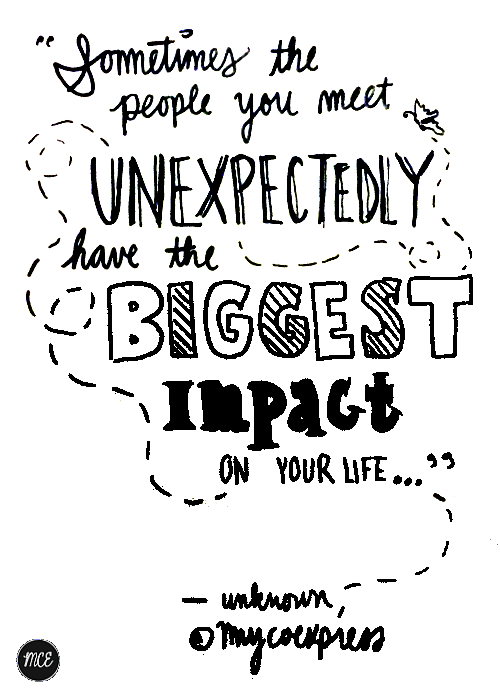 “Sometimes the
people you meet
UNEXPECTEDLY
have the
BIGGEST
Impact
ON YOUR LIFE...”
— unknown,
@mycoexpress
MCE